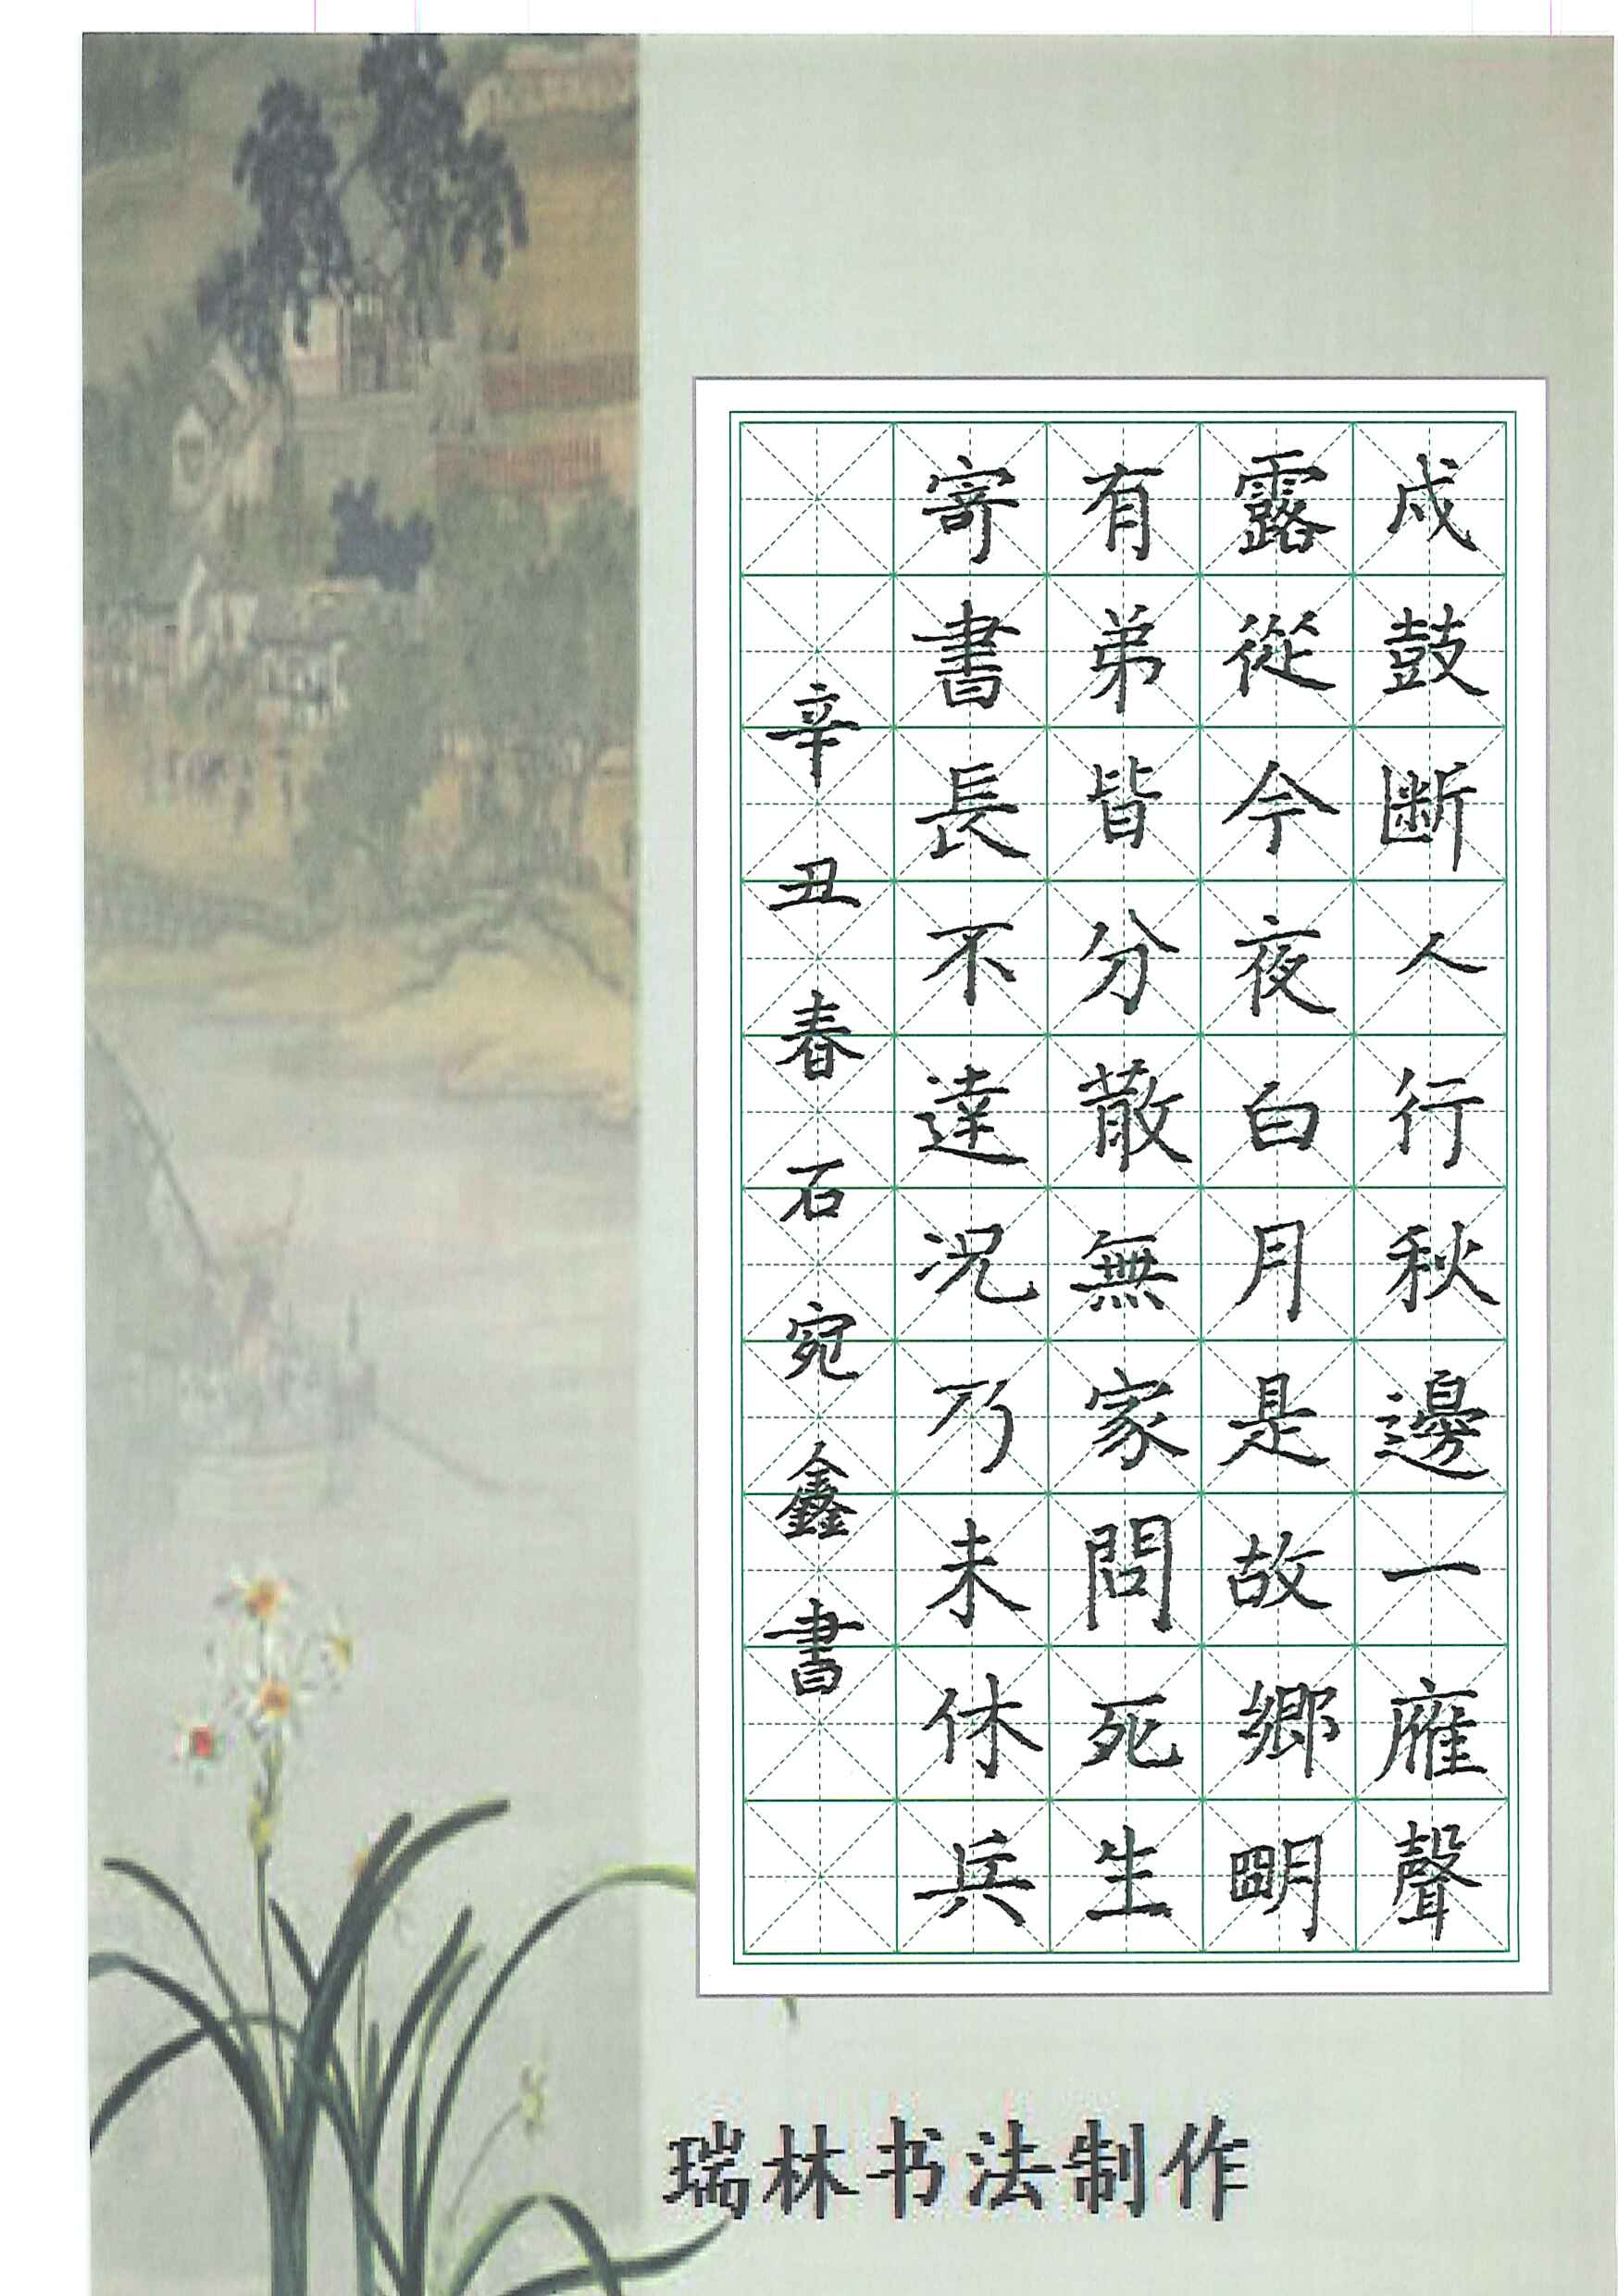 戍鼓斷人行秋邊一雁聲
露從今夜白月是故鄉明
有弟皆分散無家問死生
寄書長不達况乃未休兵
辛丑春石宛鑫書
瑞林书法制作